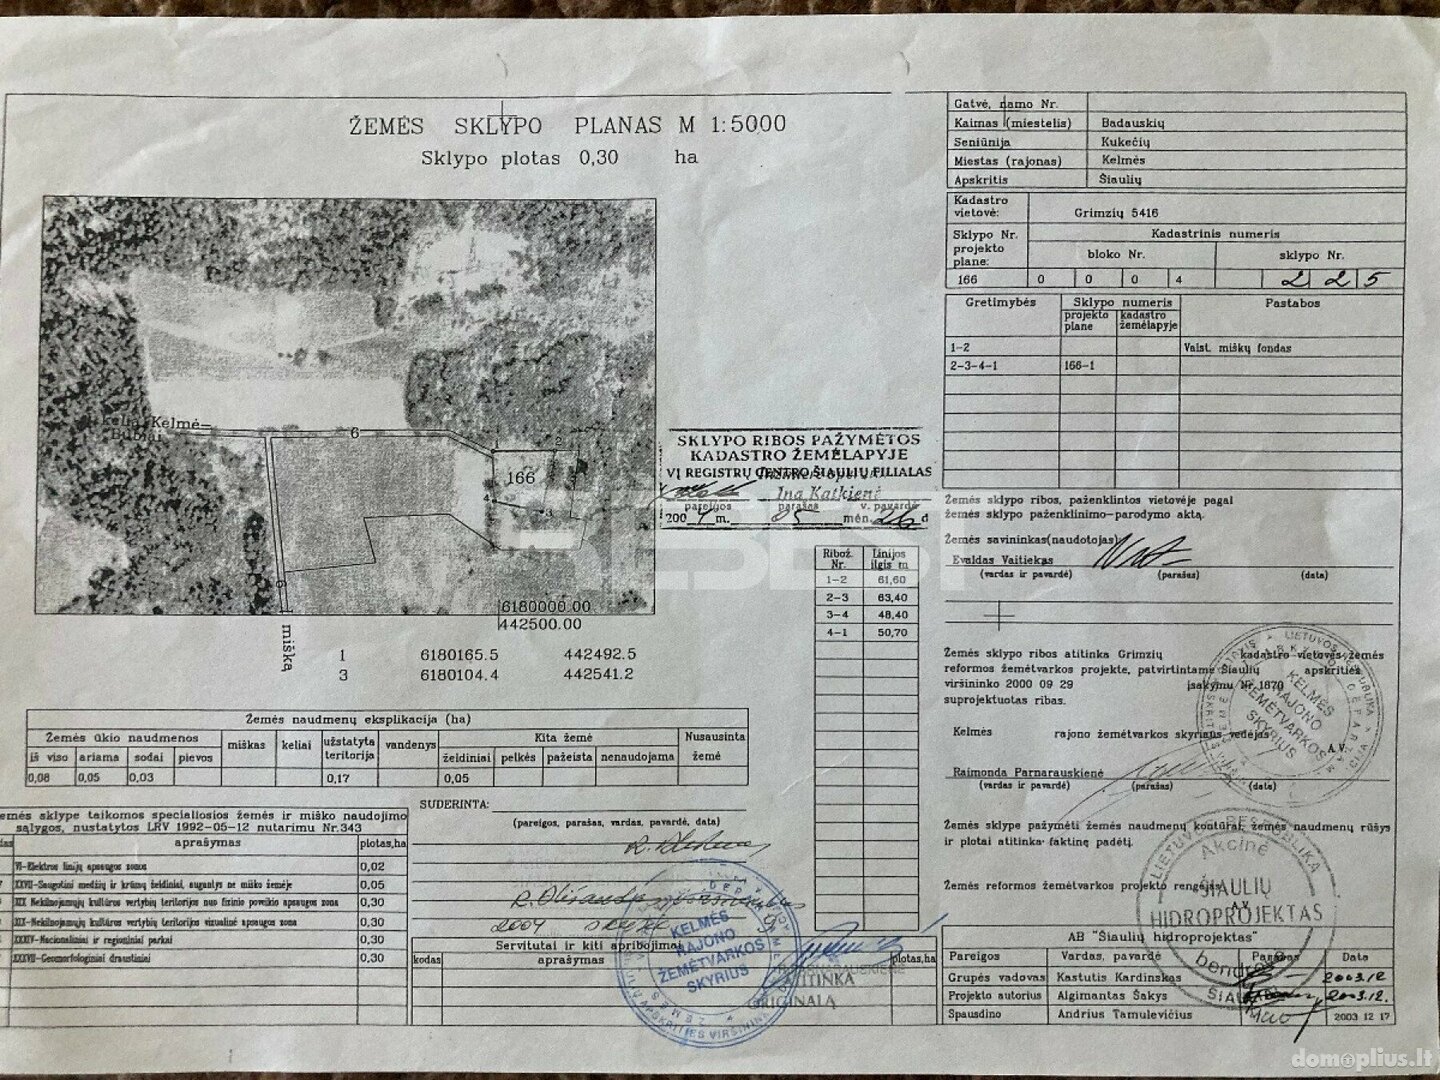 ŽEMĖS SKLYPO PLANAS M 1:5000
Sklypo plotas 0,30 ha
kelią Kelmė-
Bubiai
6
1
2
166
4
3
6
6180000.00
442500.00
mišką
1 6180165.5 442492.5
3 6180104.4 442541.2
SKLYPO RIBOS PAŽYMĖTOS
KADASTRO ŽEMĖLAPYJE
VĮ REGISTRŲ CENTRO ŠIAULIŲ FILIALAS
Ina Katkienė
pareigos parašas v. pavardė
2004 m. 05 mėn. 26 d
Ribož. Nr. Linijos ilgis m
1-2 61,60
2-3 63,40
3-4 48,40
4-1 50,70
Žemės naudmenų eksplikacija (ha)
Žemės ūkio naudmenos miškas keliai užstatyta teritorija vandenys Kita žemė Nusausinta žemė
iš viso ariama sodai pievos želdiniai pelkės pažeista nenaudojama
0,08 0,05 0,03 0,17 0,05
emės sklype taikomos specialiosios žemės ir miško naudojimo
sąlygos, nustatytos LRV 1992-05-12 nutarimu Nr.343
das aprašymas plotas,ha
VI-Elektros linijų apsaugos zonos 0,02
XXVII-Saugotini medžių ir krūmų želdiniai, augantys ne miško žemėje 0,05
XIX Nekilnojamųjų kultūros vertybių teritorijos nuo fizinio poveikio apsaugos zona 0,30
XIX-Nekilnojamųjų kultūros vertybių teritorijos vizualinė apsaugos zona 0,30
XXXIV-Nacionaliniai ir regioniniai parkai 0,30
XXXVII-Geomorfologiniai draustiniai 0,30
SUDERINTA:
(pareigos, parašas, vardas, pavardė, data)
2004
Servitutai ir kiti apribojimai
kodas aprašymas plotas,ha
KELMĖS
RAJONO
ŽEMĖTVARKOS
SKYRIUS
ATITINKA
ORIGINALĄ
Gatvė, namo Nr.
Kaimas (miestelis) Badauskių
Seniūnija Kukečių
Miestas (rajonas) Kelmės
Apskritis Šiaulių
Kadastro vietovė: Grimzių 5416
Sklypo Nr. projekto plane: Kadastrinis numeris
bloko Nr. sklypo Nr.
166 0 0 0 4 2 2 5
Gretimybės Sklypo numeris Pastabos
projekto plane kadastro žemėlapyje
1-2 Valst. miškų fondas
2-3-4-1 166-1
Žemės sklypo ribos, paženklintos vietovėje pagal
žemės sklypo paženklinimo-parodymo aktą.
Žemės savininkas(naudotojas)
Evaldas Vaitiekas
(vardas ir pavardė) (parašas) (data)
Žemės sklypo ribos atitinka Grimzių kadastro vietovės žemės
reformos žemėtvarkos projekte, patvirtintame Šiaulių apskrities
viršininko 2000 09 29 įsakymu Nr.1870
suprojektuotas ribas.
Kelmės rajono žemėtvarkos skyriaus vedėjas
A.V.
Raimonda Parnarauskienė
(vardas ir pavardė) (parašas) (data)
KELMĖS
RAJONO
ŽEMĖTVARKOS
SKYRIUS
Žemės sklype pažymėti žemės naudmenų kontūrai, žemės naudmenų rūšys
ir plotai atitinka faktinę padėtį.
Žemės reformos žemėtvarkos projekto rengėjas
A.V.
LIETUVOS RESPUBLIKA
Akcinė
ŠIAULIŲ
HIDROPROJEKTAS
bendrovė
AB "Šiaulių hidroprojektas"
Pareigos Vardas, pavardė Parašas Data
Grupės vadovas Kastutis Kardinskas 2003.12
Projekto autorius Algimantas Šakys 2003.12.
Spausdino Andrius Tamulevičius 2003 12 17
domoplius.lt